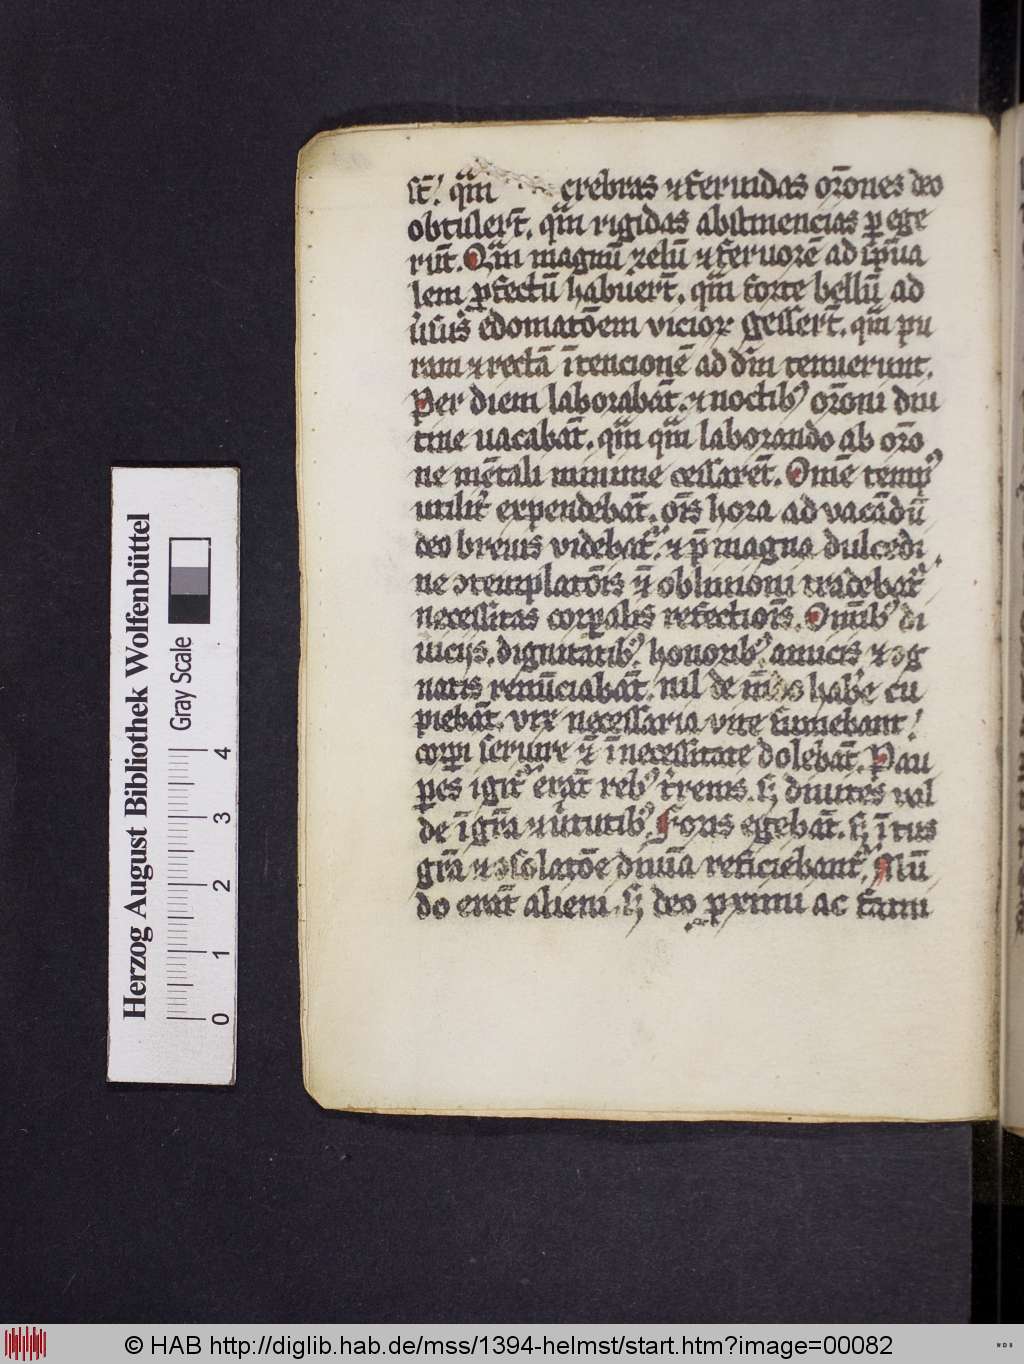 st̄! qm̄ crebras ⁊ feruidas orōnes deo
obtulert̄. qm̄ rigidas abstinencias ꝑege
rūt. Qm̄ magnū zelū ⁊ feruorē ad sp̄ua
lem ꝓfectū habuert̄. qm̄ forte bellū ad
edomatōem vicioꝝ gesserт̄. qm̄ pu
ram ⁊ rectā ītencionē ad dm̄ tenuerunt.
Per diem laborabāt. ⁊ noctibꝰ orōni diu
tine uacabāt. qm̄ qm̄ laborando ab orō
ne mētali minime cessarēt. Omē tempꝰ
utilit̄ expendebāt. oīs hora ad vacādū
deo breuis videbat᷑. ⁊ p̄ magna dulcedi
ne ɔtemplatōis ⁊̄ obliuioni tradebat᷑
necessitas corꝑalis refectiōis. Omībꝰ di
uicijs. dignitatibꝰ. honoribꝰ. amicis ⁊ ɔg
natis renūciabāt. nil de mūdo habe cu
piebāt. vix necessaria vite sumebant!
corpi seruire ⁊̄ ī necessitate dolebāt. Pau
ꝑes igit᷑ erāt rebꝰ t̄renis. sꝫ diuites val
de ī grā ⁊ v̄tutibꝰ. Foris egebāt. sꝫ ītus
grā ⁊ ɔsolatōe diuīa reficiebant᷑. Mū
do erāt alieni. sꝫ deo ꝓximi ac fami
Herzog August Bibliothek Wolfenbüttel
Gray Scale
0 1 2 3 4
© HAB http://diglib.hab.de/mss/1394-helmst/start.htm?image=00082